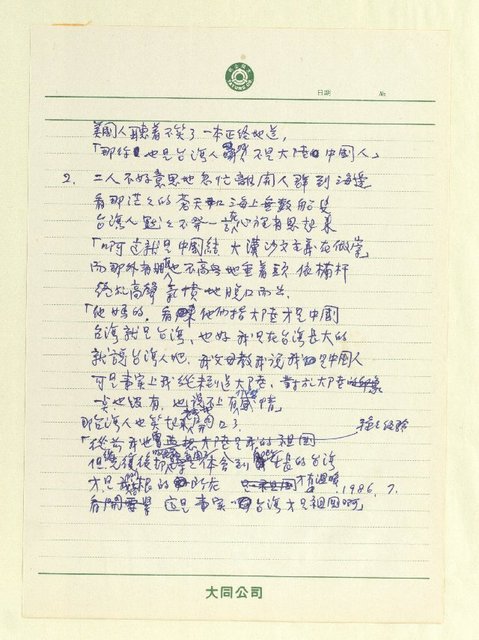 日期
美國人聽著不笑了一本正經地道,
「那你也是台灣人 不是大陸中國人」
2. 二人不好意思地急忙離開人群到海邊
看那茫茫的蒼天和海上無數船隻
台灣人默々不發一語心裡有思起來
「啊 這就是中國結 大漢沙文主義在作祟」
而那外省人也不高興地垂著頭 依欄杆
高聲氣憤地脫口而出
「他媽的, 看 他們指大陸才是中國
台灣就是台灣, 也好 我只在台灣長大的
就該台灣人吧, 我父母教我說我是中國人
可是事實上我從未到過大陸, 對於大陸印象
一點也沒有, 也談不上有感情」
那台灣人也笑起來開口了
「從前我也想大陸是我的祖國
但光復後 體會到 生長的台灣
才是 根的所在 才有溫暖
看開 這是事實 台灣才是祖國啊」
1986. 7.
大同公司